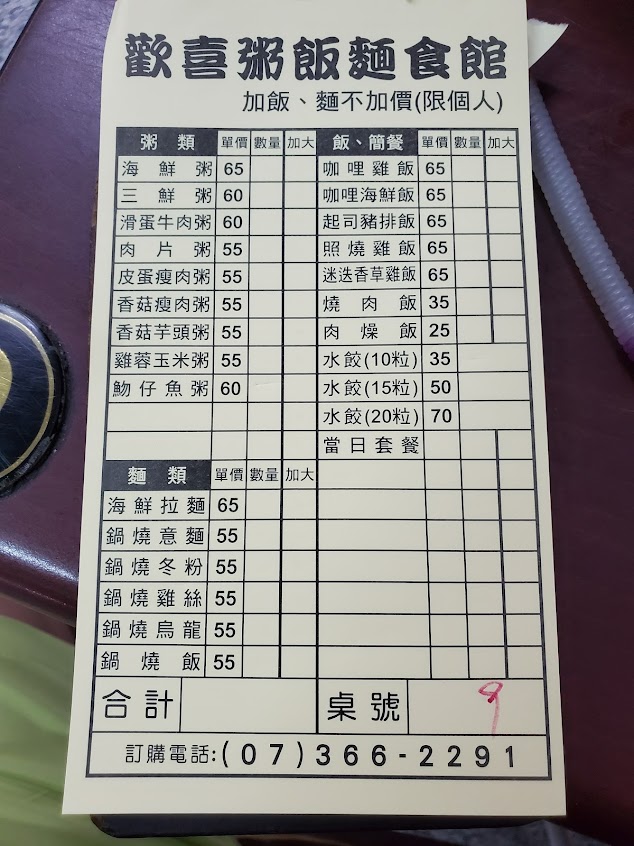 歡喜粥飯麵食館
加飯、麵不加價(限個人)
粥類 單價 數量 加大
海鮮粥 65
三鮮粥 60
滑蛋牛肉粥 60
肉片粥 55
皮蛋瘦肉粥 55
香菇瘦肉粥 55
香菇芋頭粥 55
雞蓉玉米粥 55
魩仔魚粥 60
麵類 單價 數量 加大
海鮮拉麵 65
鍋燒意麵 55
鍋燒冬粉 55
鍋燒雞絲 55
鍋燒烏龍 55
鍋燒飯 55
飯、簡餐 單價 數量 加大
咖哩雞飯 65
咖哩海鮮飯 65
起司豬排飯 65
照燒雞飯 65
迷迭香草雞飯 65
燒肉飯 35
肉燥飯 25
水餃(10粒) 35
水餃(15粒) 50
水餃(20粒) 70
當日套餐
合計
桌號 9
訂購電話:(07)366-2291